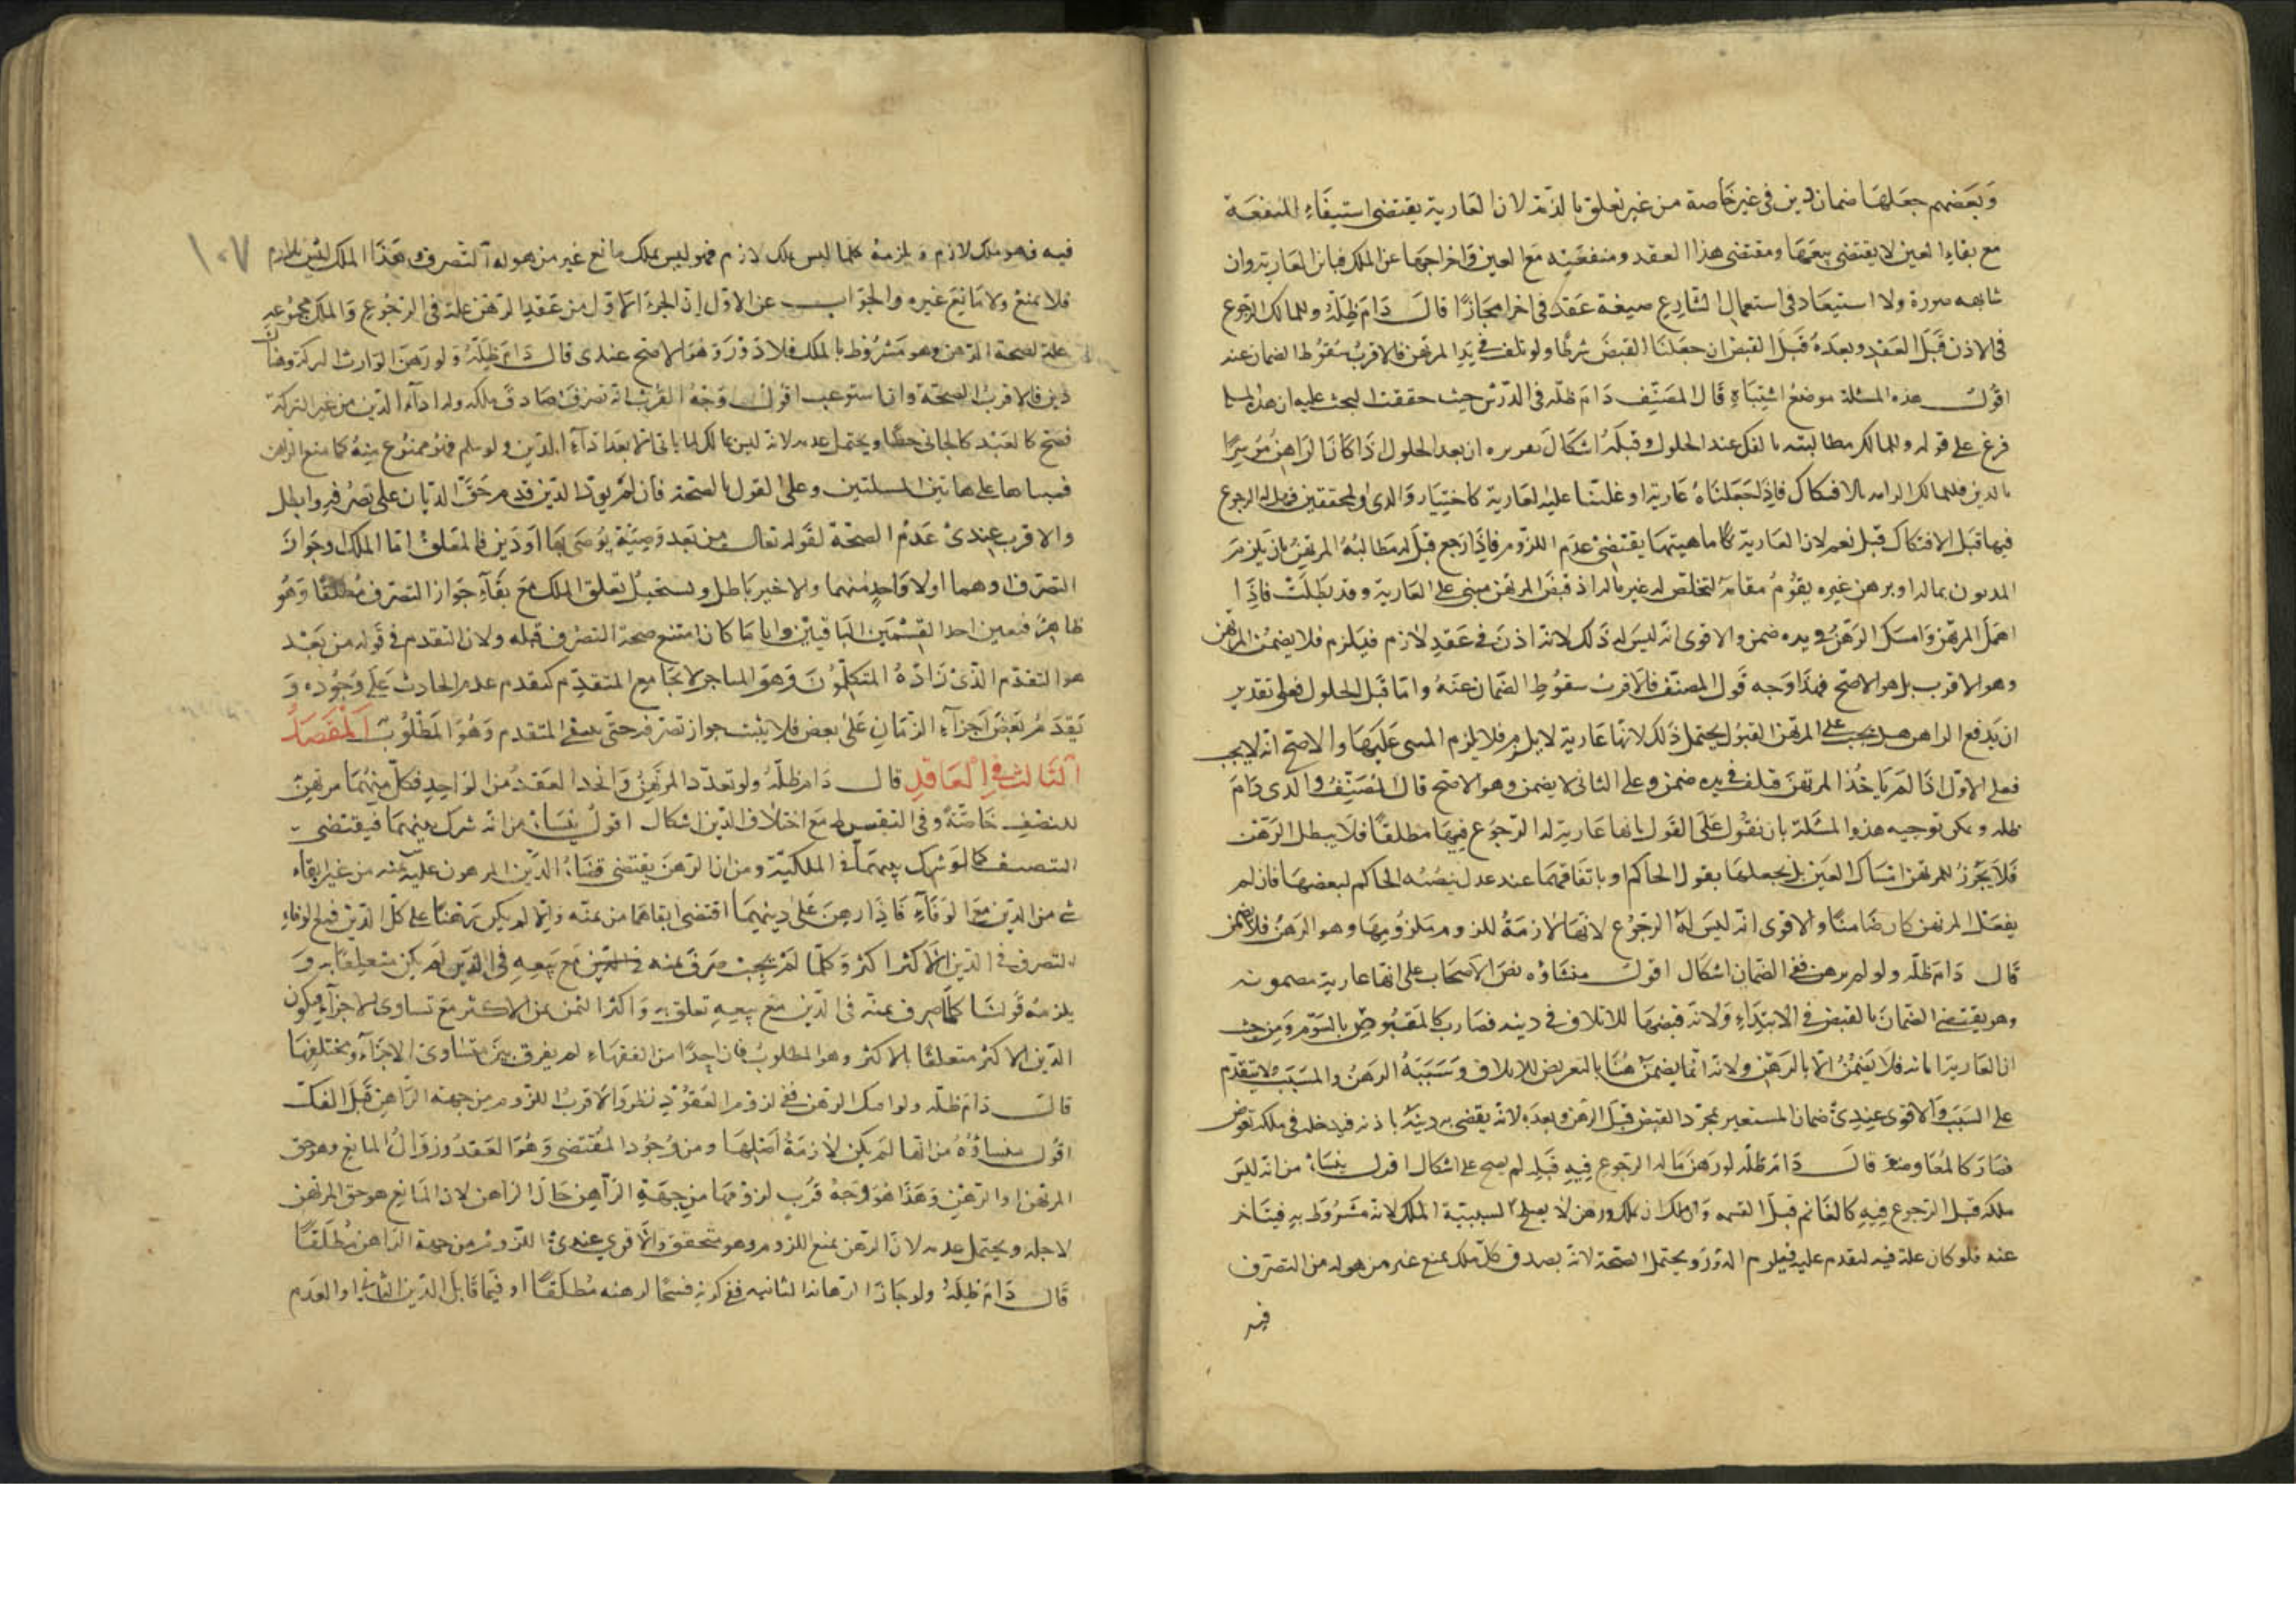 وبعضهم جعلها ضمان دين في غير خاصة من غير تعلق بالذمة لان العارية يقتضى استيفاء المنفعة
مع بقاء العين لا يقتضى بيعها ومقتضى هذا العقد ومنفعيته مع العين واخراجها عن الملك فباين العارية وان
شابهه صورة ولا استبعاد في استعمال الشارع صيغة عقد في اخر مجازا قال دام ظله وللمالك الرجوع
في الاذن قبل العقد وبعده قبل القبض ان جعلنا القبض شرطا ولو تلف في يد المرتهن فالاقرب سقوط الضمان عنه
اقول هذه المسئلة موضع اشتباه قال المصنف دام ظله في الدرس حيث حققت البحث عليه ان هذه المسئلة
فرع على قوله وللمالك مطالبته بالفك عند الحلول وقبله اشكال تقريره ان بعد الحلول اذا كان الراهن موسرا
بالدين فللمالك الزامه بالافتكاك فاذا جعلناه عارية او غلبنا عليه العارية كاختيار والدى والمحققين فهل له الرجوع
فيها قبل الافتكاك قيل نعم لان العارية ماهيتها يقتضى عدم اللزوم فاذا رجع قبل له مطالبة المرتهن بان يلزم
المديون بماله او برهن غيره يقوم مقامه لتخلص له غير ماله اذ قبض المرتهن مبنى على العارية وقد بطلت فاذا
اهمل المرتهن وامسك الرهن في يده ضمن والاقوى انه ليس له ذلك لانه اذن في عقد لازم فيلزم فلا يضمن المرتهن
وهو الاقرب بل هو الاصح فهذا وجه قول المصنف فالاقرب سقوط الضمان عنه واما قبل الحلول فعلى تقدير
ان يدفع الراهن هل يجب على المرتهن القبول يحتمل ذلك لانها عارية لا يلزم فلا يلزم المبنى عليها والاصح انه لا يجب
فعلى الاول اذا لم ياخذ المرتهن فتلف في يده ضمن وعلى الثاني لا يضمن وهو الاصح قال المصنف والدى دام
ظله ويمكن توجيه هذه المسئلة بان نقول على القول بانها عارية له الرجوع فيها مطلقا فلا يبطل الرهن
فلا يجوز للمرتهن امساك العين بل يجعلها بقول الحاكم او باتفاقهما عند عدل ينصبه الحاكم لبعضها فان لم
يفعل المرتهن كان ضامنا والاقوى انه ليس له الرجوع لانها لازمة للزوم ملزومها وهو الرهن فلا يضمن
قال دام ظله ولو لم يرهن ففي الضمان اشكال اقول منشاؤه نص الاصحاب على انها عارية مضمونه
وهو يقتضى الضمان بالقبض في الابتداء ولانه قبضها للاتلاف في دينه فصار كالمقبوض بالسوم ومن حيث
ان العارية امانه فلا يضمن الا بالرهن ولانه انما يضمن هنا بالتعريض للاتلاف وسببه الرهن والمسبب لا يتقدم
على السبب والاقوى عندى ضمان المستعير بمجرد القبض قبل الرهن وبعده لانه يقضى به دينه باذنه فيدخله في ملكه بعوض
فصار كالمعاوضة قال دام ظله لو رهن ما له الرجوع فيه قبله لم يصح على اشكال اقول ينشأ من انه ليس
ملكه قبل الرجوع فيه كالغانم قبل القسمه وان ملك ان يملك ورهن لا يصلح لسببية الملك لانه مشروط به فيتاخر
عنه فلو كان علة فيه لتقدم عليه فيلزم الدور ويحتمل الصحة لانه يصدق كل ملك يمنع غير من هو له من التصرف
فيه
١٠٧
فيه فهو ملك لازم ويلزمه كلما ليس بملك لازم فهو ليس بملك مانع غير من هو له التصرف وهذا الملك ليس بلازم
فلا يمنع ولا مانع غيره والجواب عن الاول ان الجزء الاول من عقد الرهن علة في الرجوع والملك مجموعه
علة لصحة الرهن وهو مشروط بالملك فلا دور وهو الاصح عندى قال دام ظله ولو رهن الوارث التركة وهناك
دين فالاقرب الصحة وان استوعب اقول وجه القرب انه تصرف صادف ملكه وله اداء الدين من غير التركة
فصح كالعبد كالجانى خطأ ويحتمل عدمه لانه ليس بمالك لما ياتى الا بعد اداء الدين ولو سلم فهو ممنوع منه كما منع الراهن
والاقرب عندى عدم الصحة لقوله تعالى من بعد وصية يوصى بها او دين فالمعلق اما الملك او جواز
التصرف او هما او لا واحد منهما والاخير باطل ويستحيل تعلق الملك مع بقاء جواز التصرف مطلقا وهو
ظاهر فتعين احد القسمين الباقيين واياما كان امتنع صحة التصرف قبله ولان التقدم في قوله من بعد
هو التقدم الذى زاده المتكلمون وهو المتاخر لا يجامع المتقدم كتقدم عدم الحادث على وجوده و
تقدم بعض اجزاء الزمان على بعض فلا يثبت جواز تصرفه حتى ينتفى المتقدم وهو المطلوب المقصد
الثالث في العاقد قال دام ظله ولو تعدد المرتهن واتحد العقد من الواحد فكل منهما مرتهن
للنصف خاصة وفي التقسيط مع اختلاف الدين اشكال اقول ينشأ من انه شرك بينهما فيقتضى
التنصيف كما لو شرك بينهما في الملكية ومن ان الرهن يقتضى قضاء الدين المرهون عليه بثمنه من غير ابقاء
شى من الدين مع الوفاء فاذا رهن على دينيهما اقتضى ايفاهما من ثمنه وانما لم يكن رهنا على كل الدين
التصرف في الدين الاكثر اكثر وكلما لم يجب صرف ثمنه في الدين مع بيعه في الدين لم يكن متعلقا به و
يلزمه قولنا كلما صرف ثمنه في الدين مع بيعه تعلق به واكثر الثمن عن الاكثر مع تساوى الاجزاء فيكون
الدين الاكثر متعلقا بالاكثر وهو المطلوب فان احدا من الفقهاء لم يفرق بين متساوى الاجزاء ومختلفها
قال دام ظله ولو امسك الرهن ففي لزوم العقود نظر والاقرب اللزوم من جهة الراهن قبل الفك
اقول منشاؤه من انها لم يكن لازمة اصلها ومن وجود المقتضى وهو العقد وزوال المانع وهو حق
المرتهن او الرهن وهذا هو وجه قرب لزومها من جهة الراهن حال الراهن لان المانع هو حق المرتهن
لاجله ويحتمل عدمه لان الرهن يمنع اللزوم وهو متحقق والاقوى عندى اللزوم من جهة الراهن مطلقا
قال دام ظله ولو جاز الرهان الثانيه ففي كونه فسخا لرهنه مطلقا او فيما قابل الدين الثانى او العدم